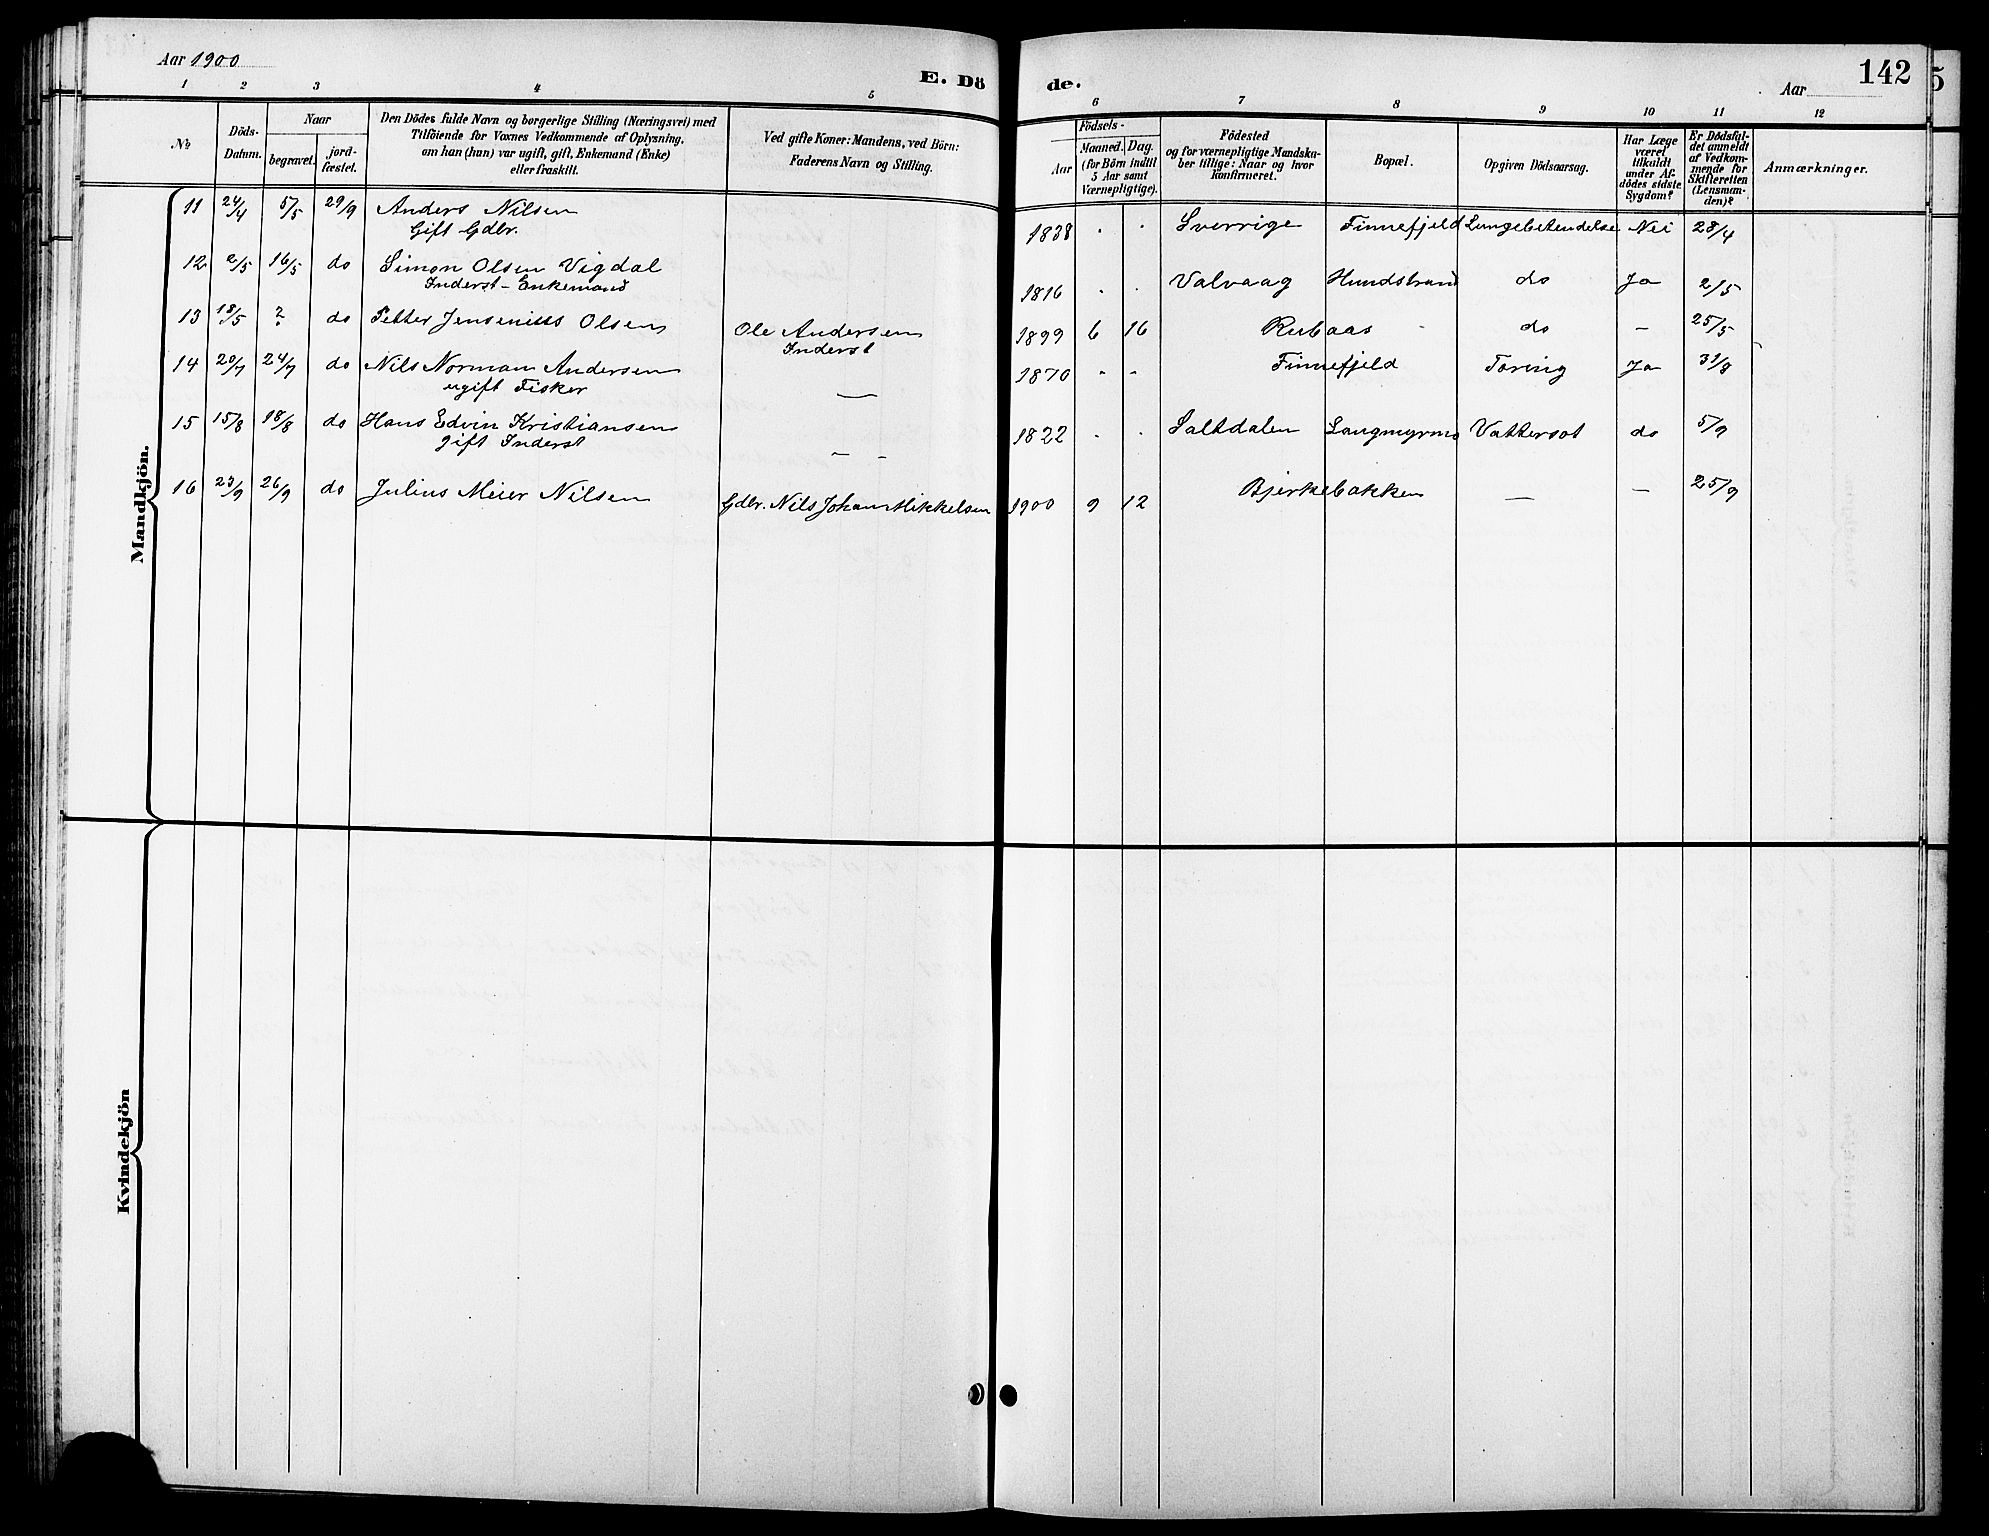 Aar 1900
E. Dö
de.
Aar
142
5
1 2 3 4 5
6 7 8 9 10 11 12
No
Döds-
Datum.
Naar
begravet.
jord-
fæstet.
Den Dödes fulde Navn og borgerlige Stilling (Næringsvei) med
Tilföiende for Voxnes Vedkommende af Oplysning,
om han (hun) var ugift, gift, Enkemand (Enke)
eller fraskilt.
Ved gifte Koner: Mandens, ved Börn:
Faderens Navn og Stilling.
Födsels-
Aar
Maaned. Dag.
(for Börn indtil
5 Aar samt
Værnepligtige).
Födested
og for værnepligtige Mandska-
ber tillige: Naar og hvor
konfirmeret.
Bopæl.
Opgiven Dödsaarsag.
Har Læge
været
tilkaldt
under Af-
dödes sidste
Sygdom?
Er Dödsfal-
det anmeldt
af Vedkom-
mende for
Skifteretten
(Lensman-
den)?
Anmærkninger.
Mandkjön.
11 24/4 5/5 29/9 Anders Nilsen
Gift Gdbr.
1838 . . Sverrige Finnefjeld Lungebetendelse Nei 28/4
12 2/5 16/5 do Simon Olsen Vigdal
Inderst - Enkemand
1816 . . Valvaag Hundstrand do Ja 2/5
13 18/5 ? do Petter Olsen
Ole Andersen
Inderst
1899 6 16 Rubaas do — 25/5
14 20/7 24/7 do Nils Norman Andersen
ugift Fisker
—
1870 - - Finnefjeld Tæring Ja 31/8
15 15/8 18/8 do Hans Edvin Kristiansen
gift Inderst
— -
1822 . . Saltdalen Langmyrmo Vattersot do 5/9
16 23/9 26/9 do Julius Meier Nilsen
Gdbr. Nils Johan Mikkelsen
1900 9 12 Bjerkebakken — — 25/9
Kvindekjön